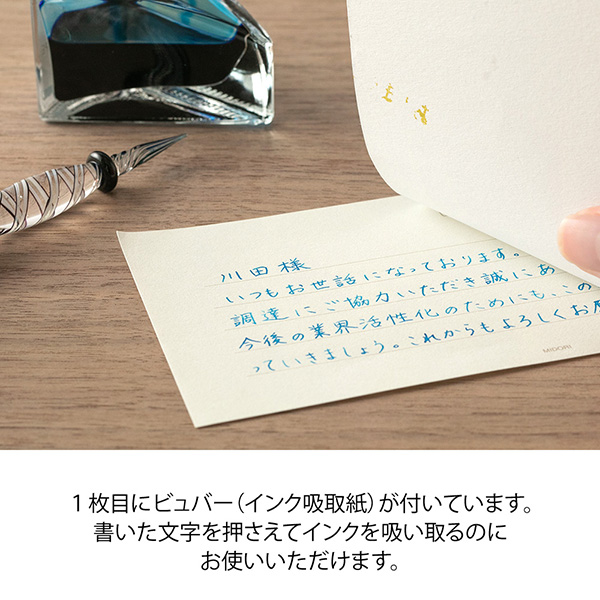 川田様
いつもお世話になっております。
調達にご協力いただき誠にあ
今後の業界活性化のためにも、この
っていきましょう。これからもよろしくお
MIDORI
1枚目にビュバー(インク吸取紙)が付いています。
書いた文字を押さえてインクを吸い取るのに
お使いいただけます。